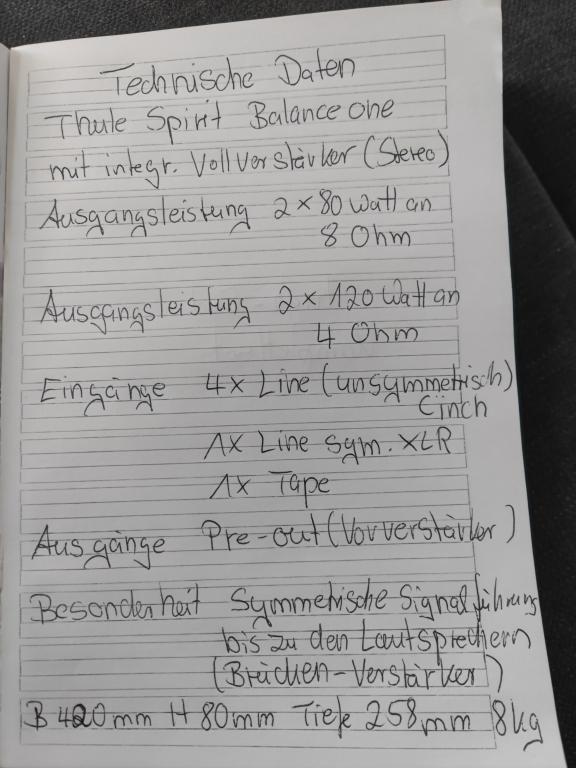 Technische Daten
Thule Spirit Balance one
mit integr. Vollverstärker (Stereo)
Ausgangsleistung 2 x 80 Watt an
8 Ohm
Ausgangsleistung 2 x 120 Watt an
4 Ohm
Eingänge 4x Line (unsymmetrisch)
Cinch
1x Line sym. XLR
1x Tape
Ausgänge Pre-out (Vorverstärker)
Besonderheit Symmetrische Signalführung
bis zu den Lautsprechern
(Brücken-Verstärker)
B 420mm H 80mm Tiefe 258mm 8kg